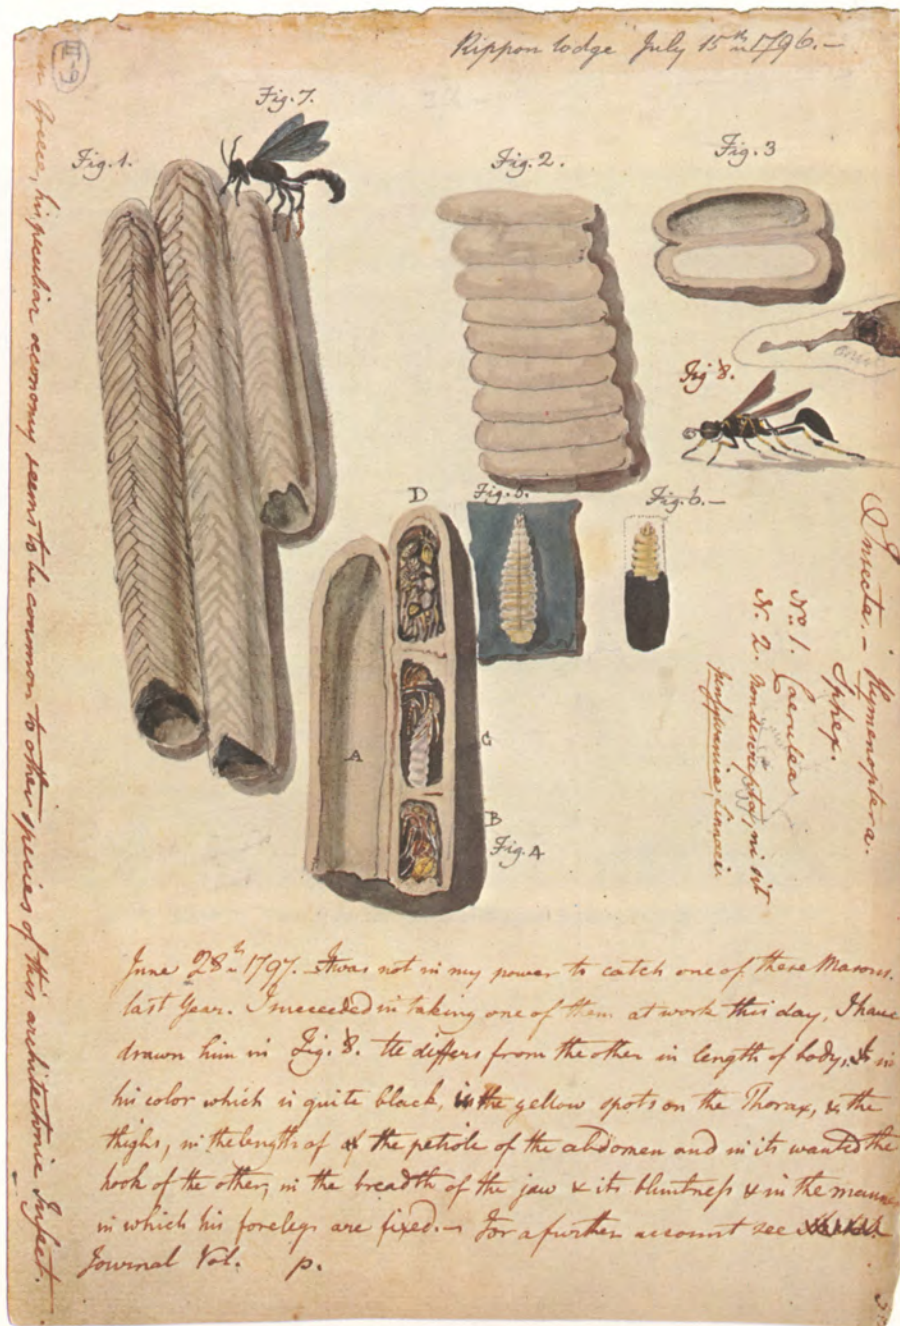 Rippon lodge July 15th 1796.-
Fig. 7.
Fig. 1.
Fig. 2.
Fig. 3
Fig 8.
D
Fig. 5.
Fig. 6.-
A
C
B
Fig. 4
Insecta.- Hymenoptera.
Sphex.
No. 1. Caerulea
N. 2. nondescripta, ni sit
pensylvanica Linnaei.
June 28th 1797. It was not in my power to catch one of these Masons
last Year. I succeeded in taking one of them at work this day, I have
drawn him in Fig. 8. He differs from the other in length of body, in
his color which is quite black, the yellow spots on the Thorax, & the
thighs, in the length of the petiole of the abdomen and in its want of the
hook of the other, in the breadth of the jaw & its bluntness & in the manner
in which his forelegs are fixed.- For a further account see
Journal Vol. p.
his peculiar oeconomy seems to be common to other species of this architectonic Insect.